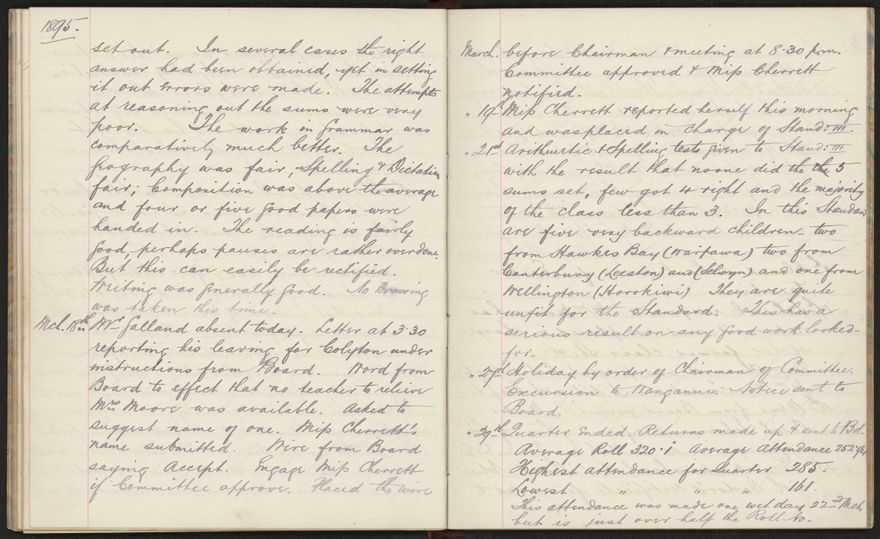 1895.
set out. In several cases the right
answer had been obtained, yet in setting
it out errors were made. The attempts
at reasoning out the sums were very
poor. The work in Grammar was
comparatively much better. The
Geography was fair, Spelling & Dictation
fair; Composition was above the average
and four or five good papers were
handed in. The reading is fairly
good, perhaps pauses are rather overdone.
But this can easily be rectified.
Writing was generally good. No Drawing
was taken this time.
Mch. 18th Mr Jalland absent today. Letter at 3.30
reporting his leaving for Colyton under
instructions from Board. Word from
Board to effect that no teacher to relieve
Mrs Moore was available. Asked to
suggest name of one. Miss Cherrett's
name submitted. Wire from Board
saying Accept. Engage Miss Cherrett
if Committee approve. Placed the wire
March. before Chairman & meeting at 8.30 p.m.
Committee approved & Miss Cherrett
notified.
" 19th Miss Cherrett reported herself this morning
and was placed in charge of Stand: III.
" 21st Arithmetic & Spelling tests given to Stand: III
with the result that no one did the the 5
sums set, few got 4 right and the majority
of the class less than 3. In this Standard
are five very backward children two
from Hawkes Bay (Waipawa) two from
Canterbury (Leeston) and (Selwyn) and one from
Wellington (Horokiwi) They are quite
unfit for the Standard. This has a
serious result on any good work looked-
for.
" Holiday by order of Chairman of Committee.
Excursion to Wanganui. Notice sent to
Board.
" 29th Quarter Ended. Returns made up & sent to Bd.
Average Roll 320.1 Average Attendance 252.
Highest attendance for Quarter 285.
Lowest " " " 161.
This attendance was made one wet day 22nd Mch
but is just over half the Roll No.